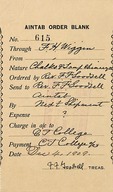 AINTAB ORDER BLANK
No. 615
Through F. H. Wiggin
From
Nature
Ordered by Rev. F. F. Goodsell
Send to Rev. F. F. Goodsell
Aintab
By Next Shipment
Expense ?
Account C T College
Payment C T College
Date 1909.
TREAS.